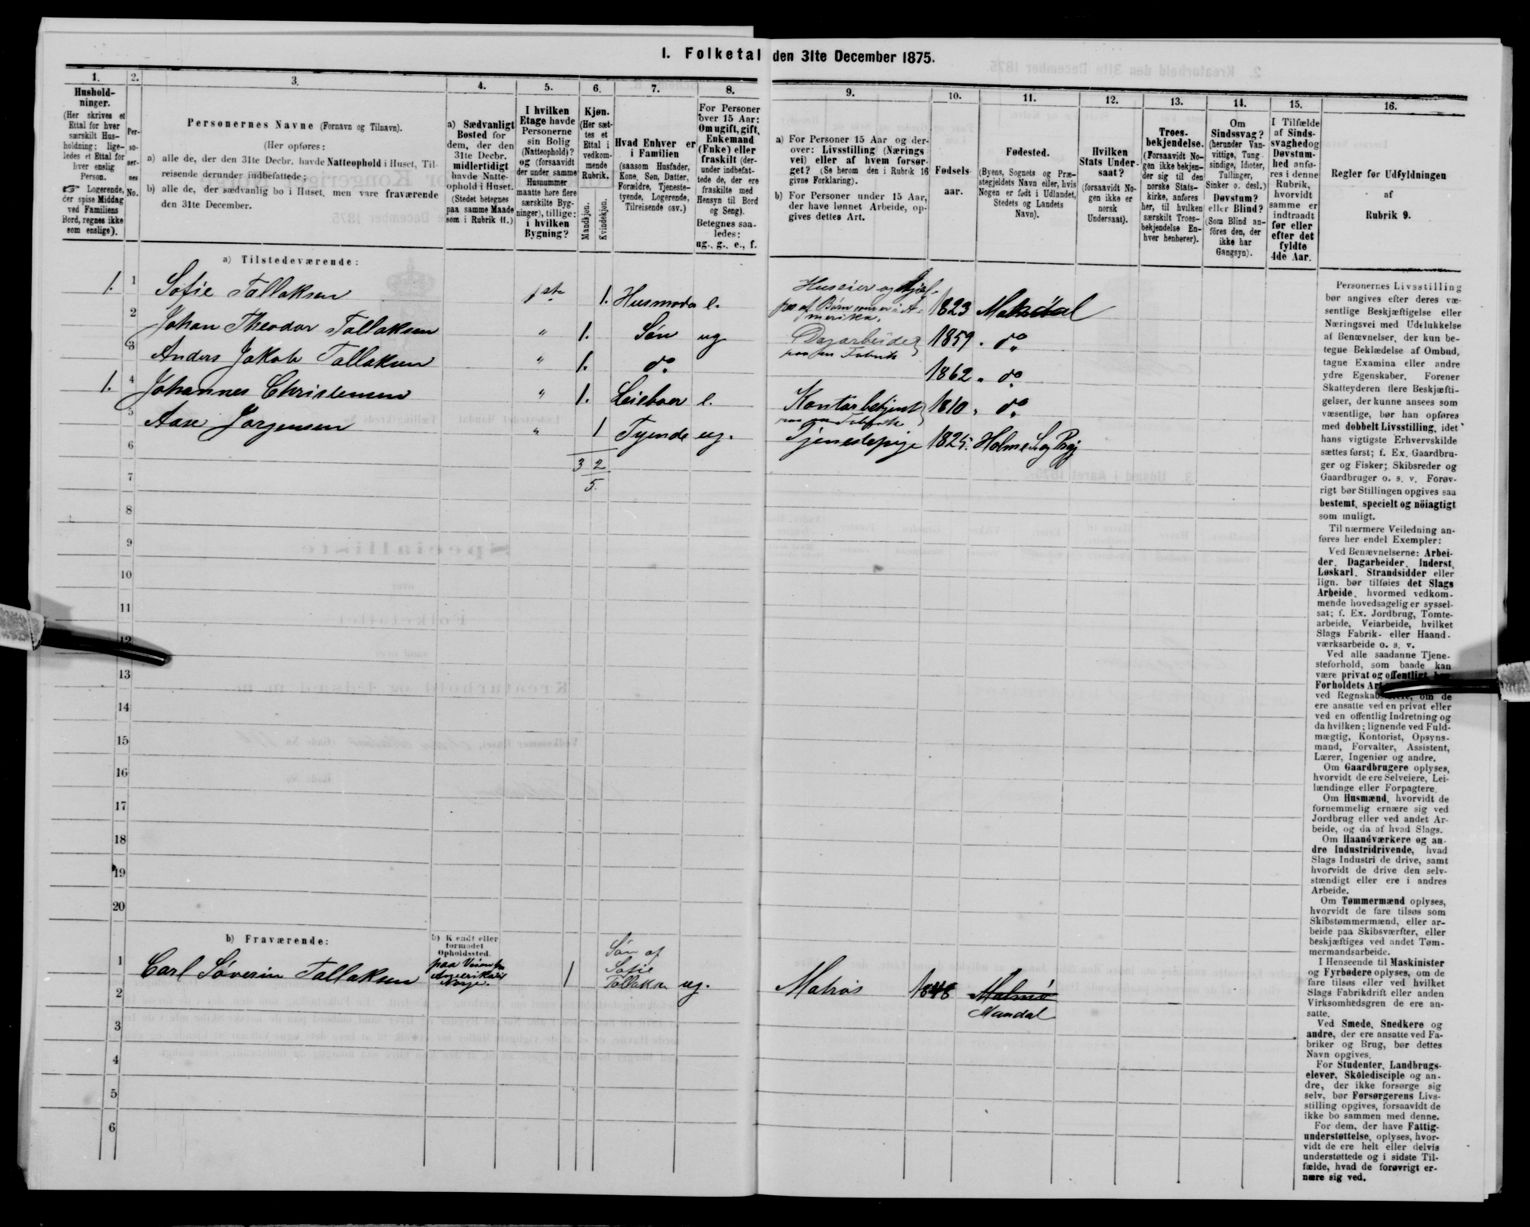 I. Folketal den 31te December 1875.
1.
Hushold-
ninger.
(Her skrives et
Ettal for hver
særskilt Hus-
holdning; lige-
ledes et Ettal for
hver enslig
Person.
☞ Logerende,
der spise Middag
ved Familiens
Bord, regnes ikke
som enslige).
2.
Per-
so-
ner-
nes
No.
3.
Personernes Navne (Fornavn og Tilnavn).
(Her opføres:
a) alle de, der den 31te Decbr. havde Natteophold i Huset, Til-
reisende derunder indbefattede;
b) alle de, der sædvanlig bo i Huset, men vare fraværende
den 31te December.
4.
a) Sædvanligt
Bosted for
dem, der den
31te Decbr.
midlertidigt
havde Natte-
ophold i Huset.
(Stedet betegnes
paa samme Maade
som i Rubrik 11.)
5.
I hvilken
Etage havde
Personerne
sin Bolig
(Natteophold)?
og (forsaavidt
der under samme
Husnummer
maatte høre flere
særskilte Byg-
ninger), tillige:
i hvilken
Bygning?
6.
Kjøn.
(Her sæt-
tes et
Ettal i
vedkom-
mende
Rubrik.
Mandkjøn.
Kvindekjøn.
7.
Hvad Enhver er
i Familien
(saasom Husfader,
Kone, Søn, Datter,
Forældre, Tjeneste-
tyende, Logerende,
Tilreisende osv.)
8.
For Personer
over 15 Aar:
Om ugift, gift,
Enkemand
(Enke) eller
fraskilt (der-
under indbefat-
tede de, der ere
fraskilte med
Hensyn til Bord
og Seng).
Betegnes saa-
ledes:
ug., g., e., f.
9.
a) For Personer 15 Aar og der-
over: Livsstilling (Nærings
vei) eller af hvem forsør-
get? (Se herom den i Rubrik 16
givne Forklaring).
b) For Personer under 15 Aar,
der have lønnet Arbeide, op-
gives dettes Art.
10.
Fødsels-
aar.
11.
Fødested.
(Byens, Sognets og Præ-
stegjeldets Navn eller, hvis
Nogen er født i Udlandet,
Stedets og Landets
Navn).
12.
Hvilken
Stats Under-
saat?
(forsaavidt No-
gen ikke er
norsk
Undersaat).
13.
Troes-
bekjendelse.
(Forsaavidt No-
gen ikke bekjen-
der sig til den
norske Stats-
kirke, anføres
her, til hvilken
særskilt Troes-
bekjendelse En-
hver henhører).
14.
Om
Sindssvag?
(herunder Van-
vittige, Tung
sindige, Idioter,
Tullinger,
Sinker o. desl.)
Døvstum?
eller Blind?
(Som Blind an-
føres den, der
ikke har
Gangsyn).
15.
I Tilfælde
af Sinds-
svaghed og
Døvstum-
hed anfø-
res i denne
Rubrik,
hvorvidt
samme er
indtraadt
før eller
efter det
fyldte
4de Aar.
16.
Regler før Udfyldningen
af
Rubrik 9.
a) Tilstedeværende:
1. 1 Sofie Tallaksen 1ste 1. Husmoder e. Huseier og forsør- 1823 Mandal
2 Johan Theodor Tallaksen " 1. Søn ug Dagarbeider 1859 do
3 Anders Jakob Tallaksen " 1. do 1862 do
1. 4 Johannes Christensen " 1. Leieboer e. Kontorbetjent 1810 do
5 Aase Jørgensen " 1 Tyende ug. Tjenestepige 1825 Holme S. og Prgj
6
3 2
5.
7
8
9
10
11
12
13
14
15
16
17
18
19
20
b) Fraværende:
b) Kjendt eller
formodet
Opholdssted.
1 Carl Søverin Tallaksen paa Reise fra Amerika til Norge. 1 Søn af Sofie Tallaksen ug. Matros 1848 Mandal
2
3
4
5
6
Personernes Livsstilling
bør angives efter deres væ-
sentlige Beskjæftigelse eller
Næringsvei med Udelukkelse
af Benævnelser, der kun be-
tegne Beklædelse af Ombud,
tagne Examina eller andre
ydre Egenskaber. Forener
Skatteyderen flere Beskjæfti-
gelser, der kunne ansees som
væsentlige, bør han opføres
med dobbelt Livsstilling, idet
hans vigtigste Erhvervskilde
sættes først; f. Ex. Gaardbru-
ger og Fisker; Skibsreder og
Gaardbruger o. s. v. Forøv-
rigt bør Stillingen opgives saa
bestemt, specielt og nöiagtigt
som muligt.
Til nærmere Veiledning an-
føres her endel Exempler:
Ved Benævnelserne: Arbei-
der, Dagarbeider, Inderst,
Løskarl, Strandsidder eller
lign. bør tilføies det Slags
Arbeide, hvormed vedkom-
mende hovedsagelig er syssel-
sat; f. Ex. Jordbrug, Tomte-
arbeide, Veiarbeide, hvilket
Slags Fabrik- eller Haand-
værksarbeide o. s. v.
Ved alle saadanne Tjene-
steforhold, som baade kan
være privat og offentligt, bør
Forholdets Art
ved Regnskabs om de
ere ansatte ved en privat eller
ved en offentlig Indretning og
da hvilken; lignende ved Fuld-
mægtig, Kontorist, Opsyns-
mand, Forvalter, Assistent,
Lærer, Ingeniør og andre.
Om Gaardbrugere oplyses,
hvorvidt de ere Selveiere, Lei-
lændinge eller Forpagtere.
Om Husmænd, hvorvidt de
fornemmelig ernære sig ved
Jordbrug eller ved andet Ar-
beide, og da af hvad Slags.
Om Haandværkere og an-
dre Industridrivende, hvad
Slags Industri de drive, samt
hvorvidt de drive den selv-
stændigt eller ere i andres
Arbeide.
Om Tømmermænd oplyses,
hvorvidt de fare tilsøs som
Skibstømmermænd, eller ar-
beide paa Skibsværfter, eller
beskjæftiges ved andet Tøm-
mermandsarbeide.
I Henseende til Maskinister
og Fyrbødere oplyses, om de
fare tilsøs eller ved hvilket
Slags Fabrikdrift eller anden
Virksomhedsgren de ere an-
satte.
Ved Smede, Snedkere og
andre, der ere ansatte ved Fa-
briker og Brug, bør dettes
Navn opgives.
For Studenter, Landbrugs-
elever, Skoledisciple og an-
dre, der ikke forsørge sig
selv, bør Forsørgerens Livs-
stilling opgives, forsaavidt de
ikke bo sammen med denne.
For dem, der have Fattig-
understøttelse, oplyses, hvor-
vidt de ere helt eller delvis
understøttede og i sidste Til-
fælde, hvad de forøvrigt er-
nære sig ved.